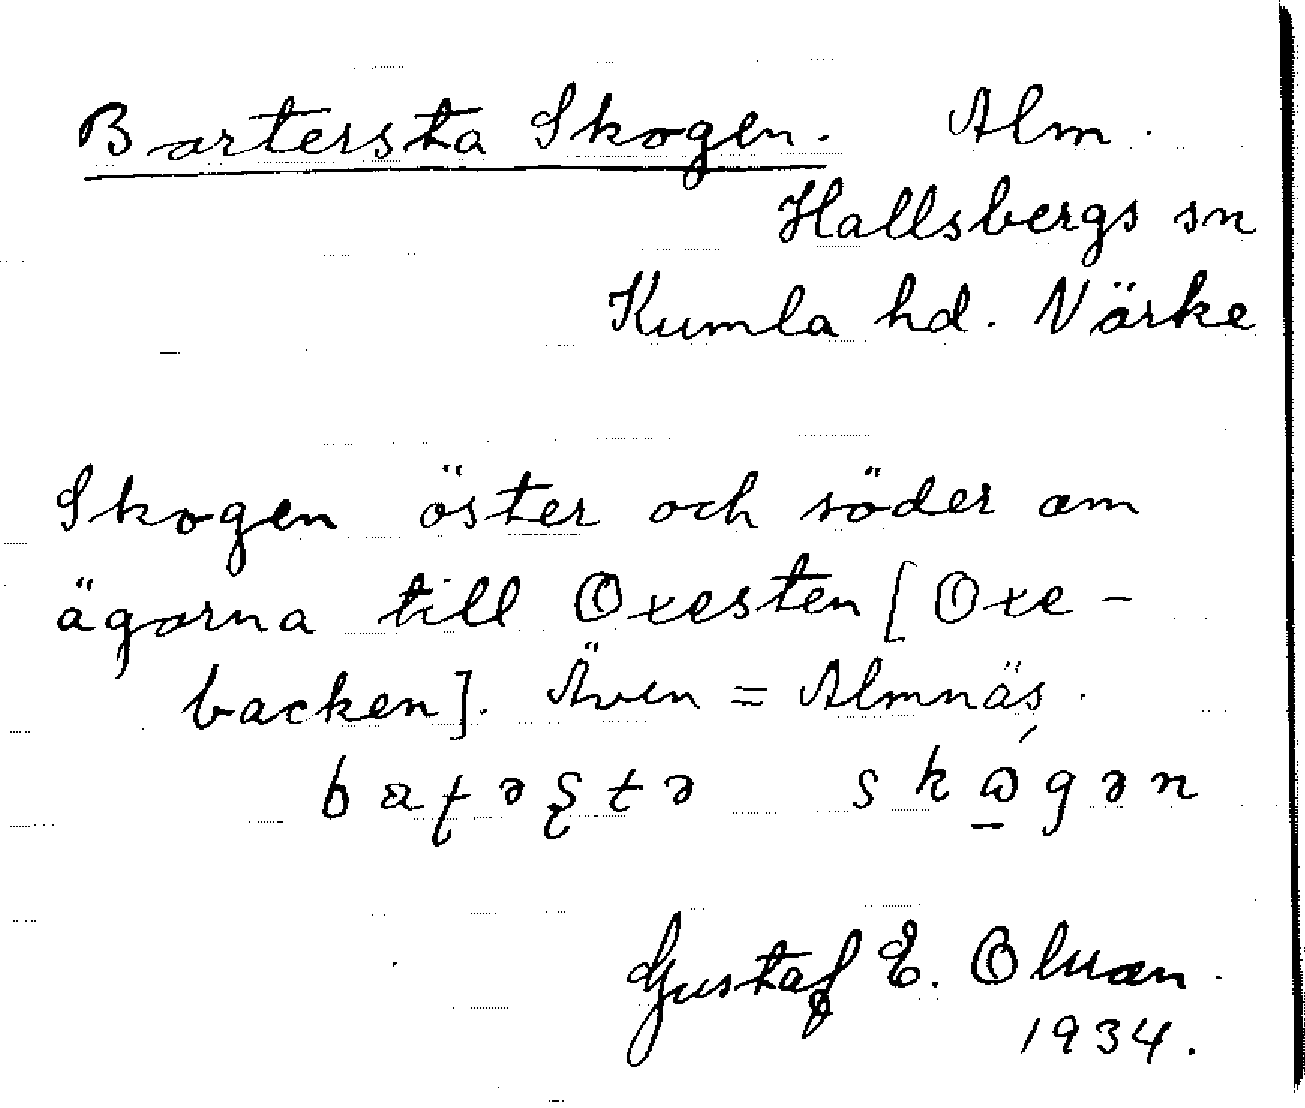 Bartersta Skogen. Alm.
Hallsbergs sn
Kumla hd. Närke
Skogen öster och söder om
ägorna till Oxesten [Oxe-
backen]. Även = Almnäs.
skågən
Gustaf E.
1934.